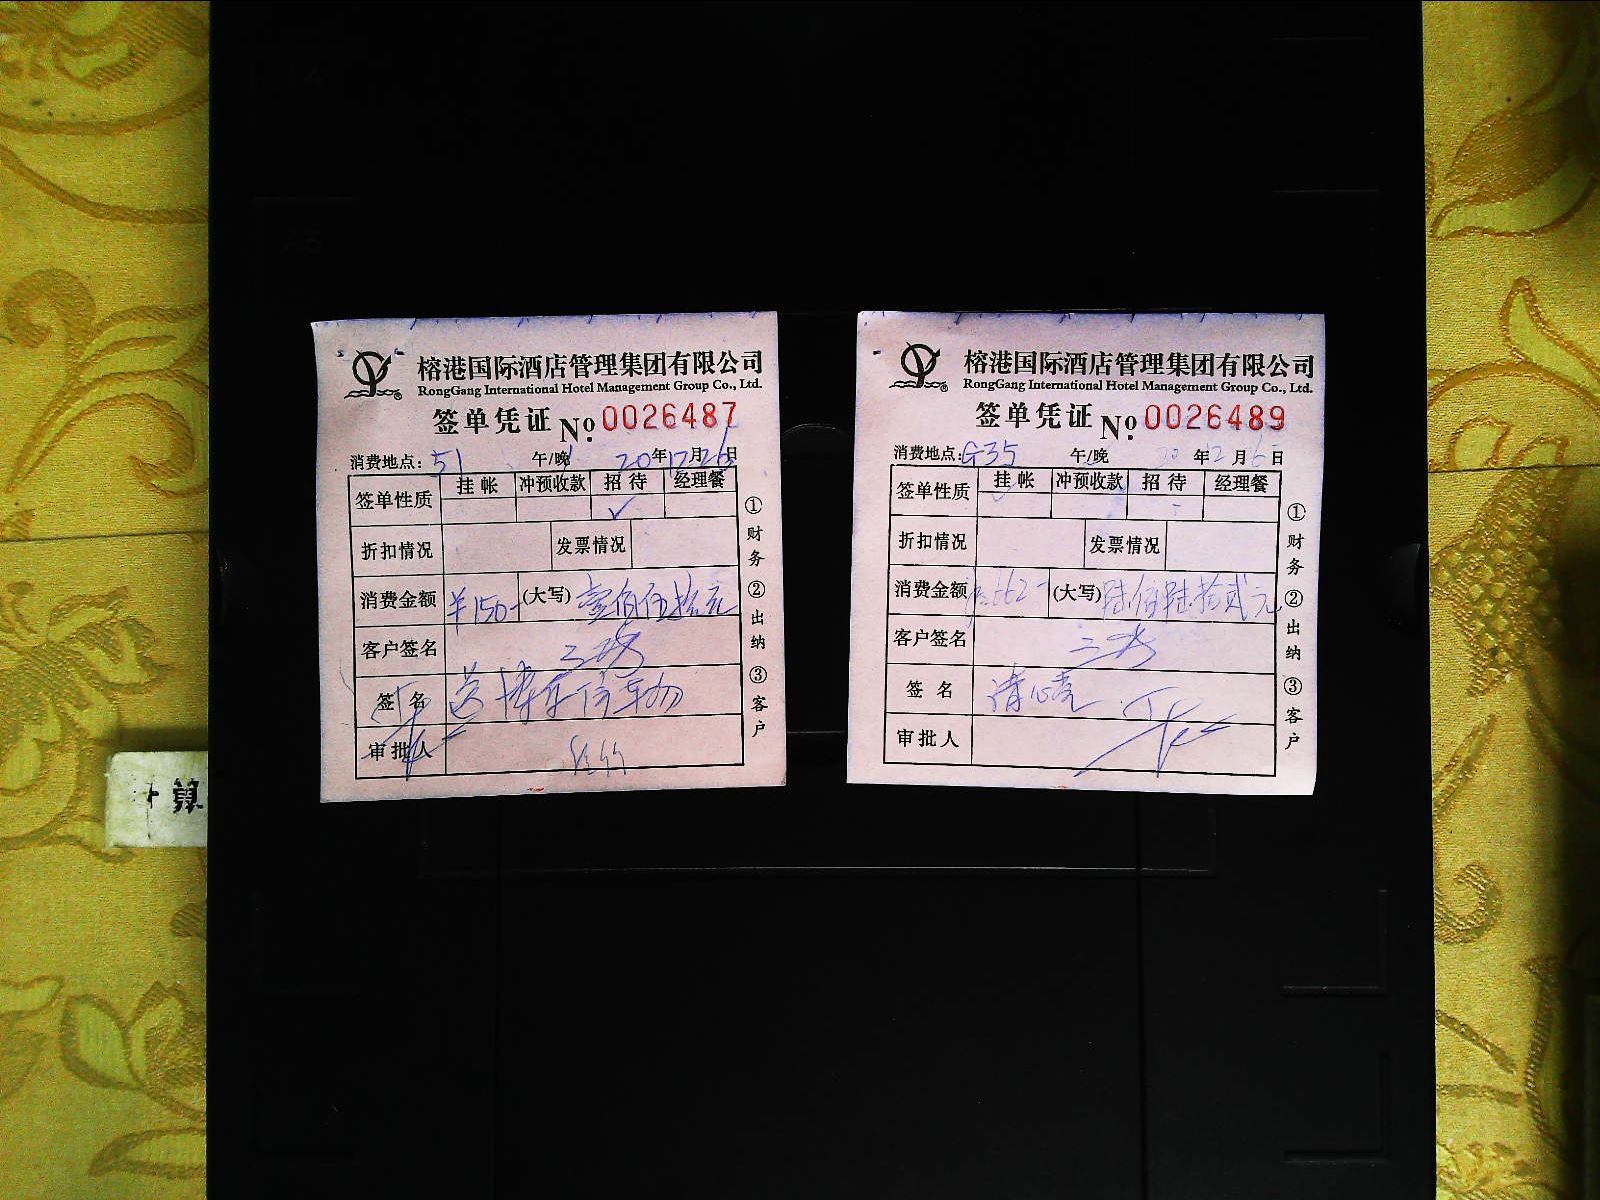 榕港国际酒店管理集团有限公司
RongGang International Hotel Management Group Co., Ltd.
签单凭证 No. 0026487
消费地点: 51 午/晚 年 12月 26日
签单性质 挂帐 冲预收款 招待 经理餐
✓
折扣情况 发票情况
消费金额 ¥150- (大写) 壹佰伍拾元
客户签名
签名
审批人
①财务 ②出纳 ③客户
榕港国际酒店管理集团有限公司
RongGang International Hotel Management Group Co., Ltd.
签单凭证 No. 0026489
消费地点: G35 午/晚 年 12月 日
签单性质 挂帐 冲预收款 招待 经理餐
折扣情况 发票情况
消费金额 662- (大写) 陆佰陆拾贰元
客户签名
签名
审批人
①财务 ②出纳 ③客户
算